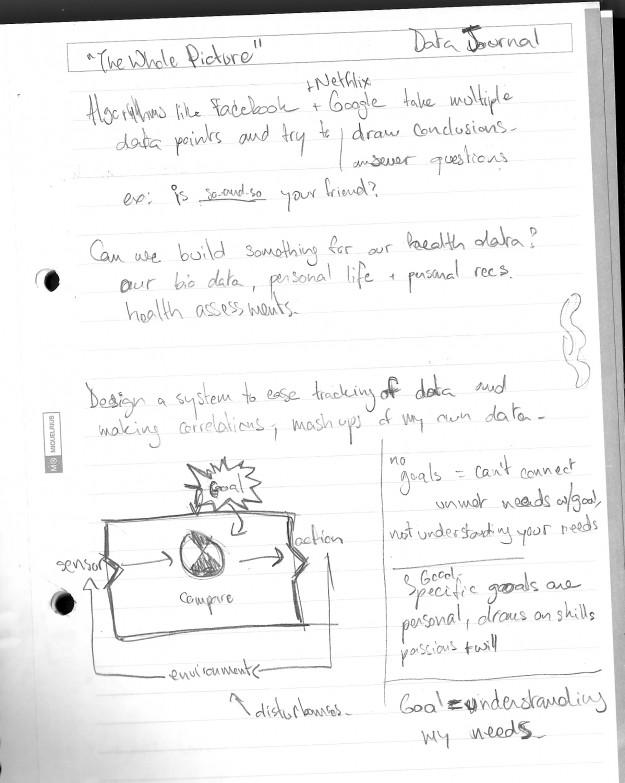 "The Whole Picture"
Data Journal
+ Netflix
Algorithms like Facebook + Google take multiple
data points and try to draw conclusions.
answer questions
ex: is so-and-so your friend?
Can we build something for our health data?
our bio data, personal life + personal recs.
health assessments.
Design a system to ease tracking of data and
making correlations, mashups of my own data.
MIQUELRIUS
Goal
sensor
action
compare
environment
disturbances.
no
goals = can't connect
unmet needs w/goal,
not understanding your needs
Good,
specific goals are
personal, draws on skills
passions + will
Goal = understanding
my needs.